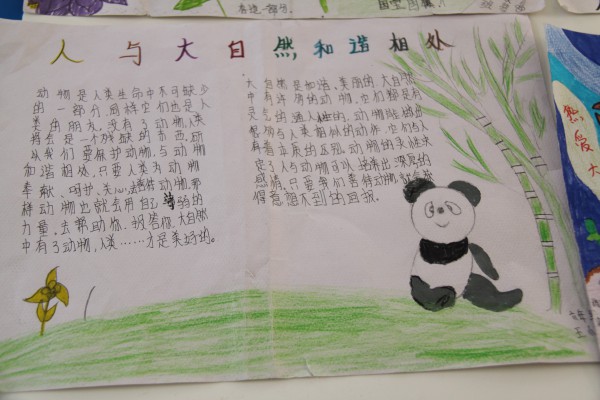 人与大自然和谐相处
动物是人类生命中不可缺少
的一部分,同样它们也是人
类的朋友,没有了动物,人类
将会是一个残缺的东西,所
以我们要保护动物,与动物
和谐相处,只要人类为动物
奉献、呵护、关心,去善待动物,那
样动物也就会用自己的
力量,去帮助你、报答你,大自然
中有了动物,人类……才是美好的。
大自然是和谐、美丽的,大自然
中有许多的动物,它们都是有
灵气的,通人性的,动物能做出
与人类相似的动作,它们与人
有着本质的区别,动物的灵性决
定了人与动物可以培养出深厚的
感情,只要我们善待动物,就会获
得意想不到的回报。
六年
王
热爱大